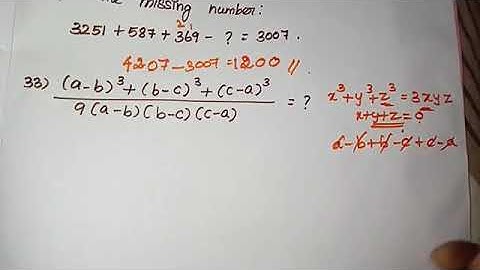 missing number:
3251 + 587 + 369 - ? = 3007.
2 1
4207 - 3007 = 1200 //
33) (a-b)³ + (b-c)³ + (c-a)³
9(a-b)(b-c)(c-a) = ?
x³+y³+z³ = 3xyz
x+y+z = 0
a-b+b-c+c-a